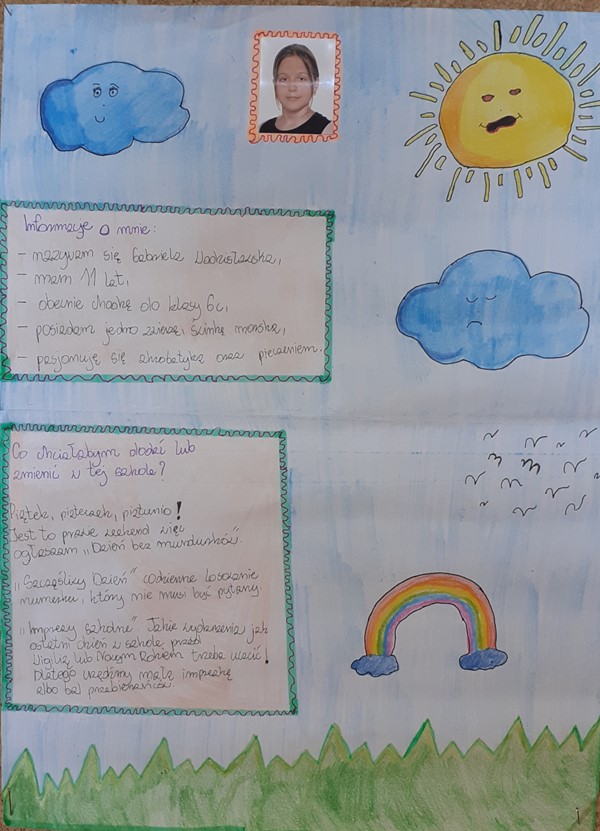 Informacje o mnie:
- nazywam się Gabriela
- mam 11 lat,
- obecnie chodzę do klasy 6c,
- posiadam jedno zwierzę, świnkę morską,
- pasjonuję się akrobatyką oraz pieczeniem.
Co chciałabym dodać lub
zmienić w tej szkole?
Piątek, piąteczek, piątunio!
Jest to prawie weekend więc
ogłaszam „Dzień bez mundurków".
„Szczęśliwy Dzień" codzienne losowanie
numerku, który nie musi być pytany.
„Imprezy szkolne" Takie wydarzenia jak
ostatni dzień w szkole przed
Wigilią lub Nowym Rokiem trzeba uczcić!
Dlatego urządzimy małą imprezkę
albo bal przebierańców.